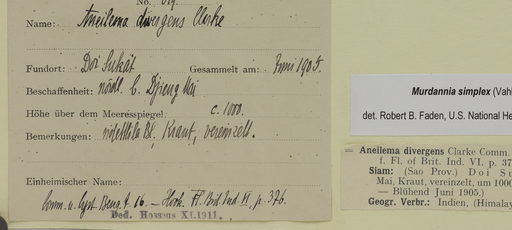 No.
Name: Aneilema divergens Clarke
Fundort: Doi Sutät Gesammelt am: Juni 1905.
Beschaffenheit: nördl. b. Djieng Mai
Höhe über dem Meeresspiegel c. 1000.
Bemerkungen: violettlila Bl., Kraut, vereinzelt.
Einheimischer Name:
Comm. u. Cyrt. Beng. t. 16. — Hook. Fl. Brit. Ind. VI, p. 376.
Ded. Hosseus XI.1911.
Murdannia simplex (Vahl
det. Robert B. Faden, U.S. National He
Aneilema divergens Clarke Comm.
f. Fl. of Brit. Ind. VI. p. 37
Siam: (Sao Prov.) Doi Su
Mai, Kraut, vereinzelt, um 1000
— Blühend Juni 1905).
Geogr. Verbr.: Indien, (Himalay